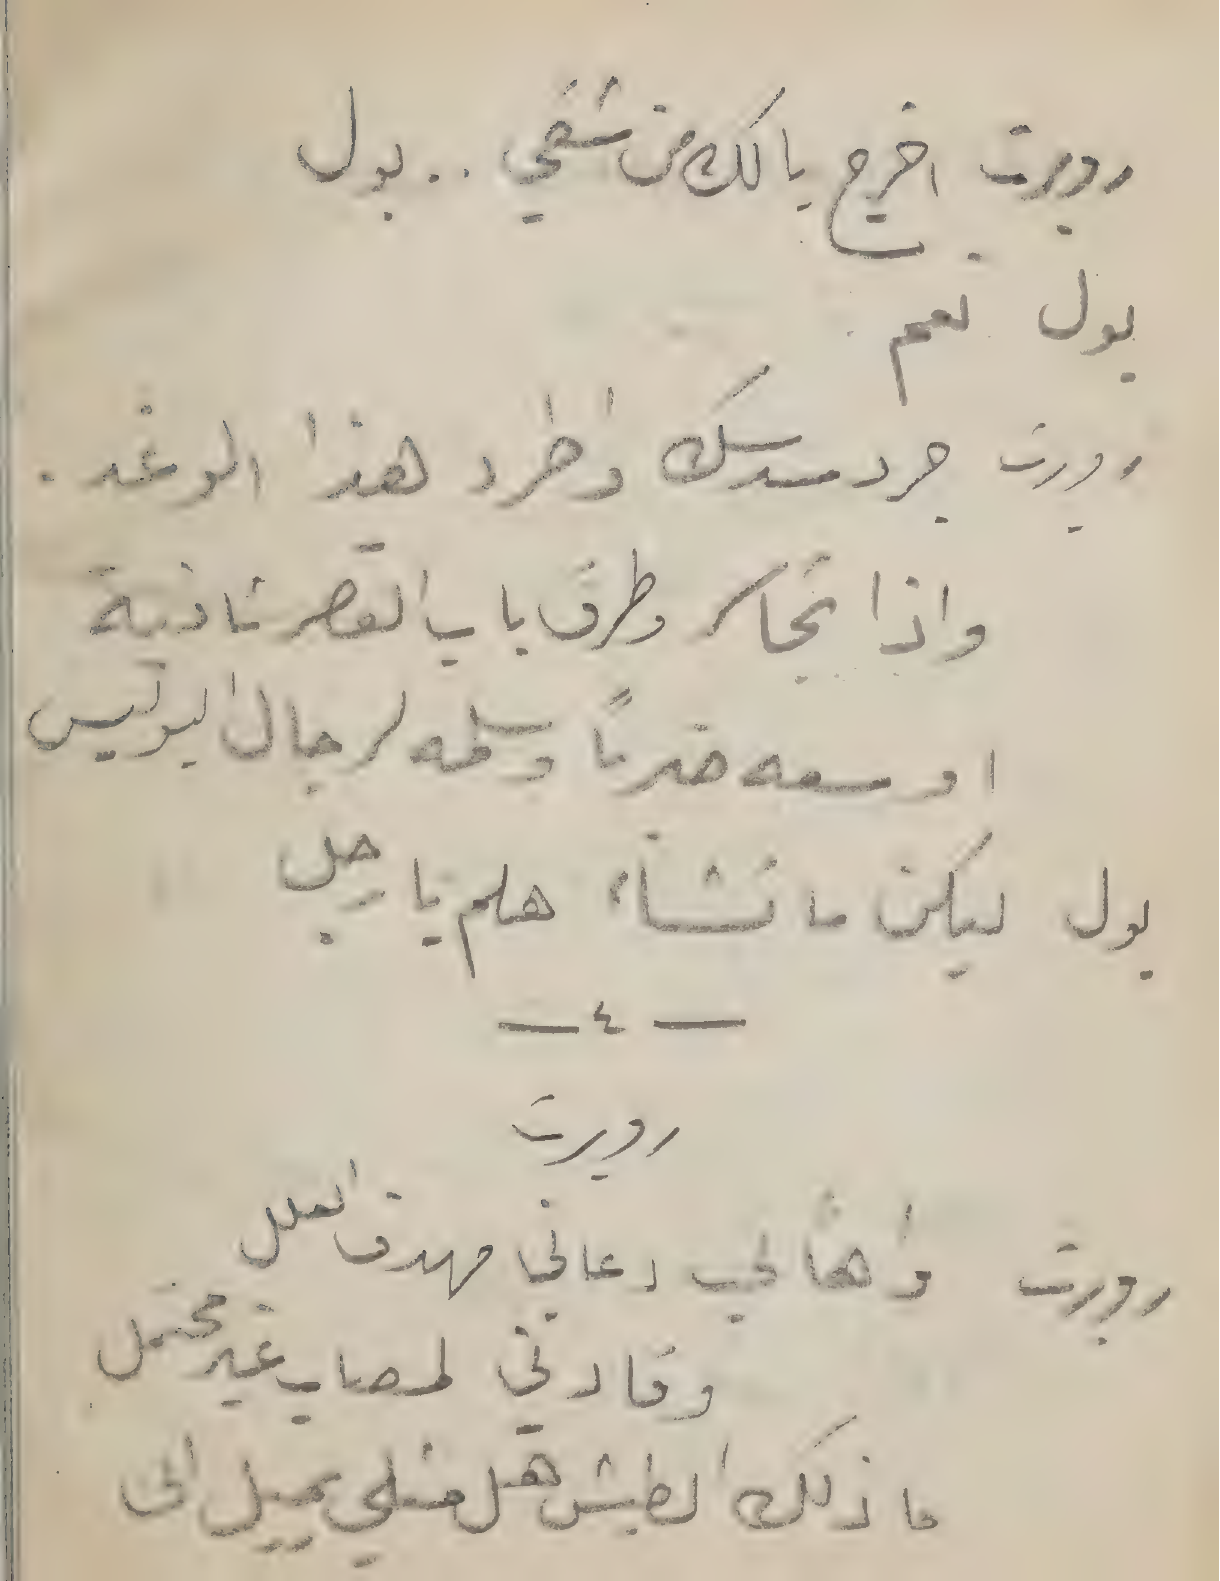 روبرت اخرج يا لك من شقي .. بول
بول نعم
روبرت جرد مسدسك واطرد هذا الوغد .
واذا تجاسر وطرق باب القصر ثانية
اوسعه ضربًا وسلمه لرجال البوليس
بول ليكن ما تشاء هلم يا رجل
— ٤ —
روبرت
روبرت واهًا لحب دعاني مهرق المقل
وقادني لمصاب غير محتمل
ما ذلك الطيش هل مثلي يميل الى